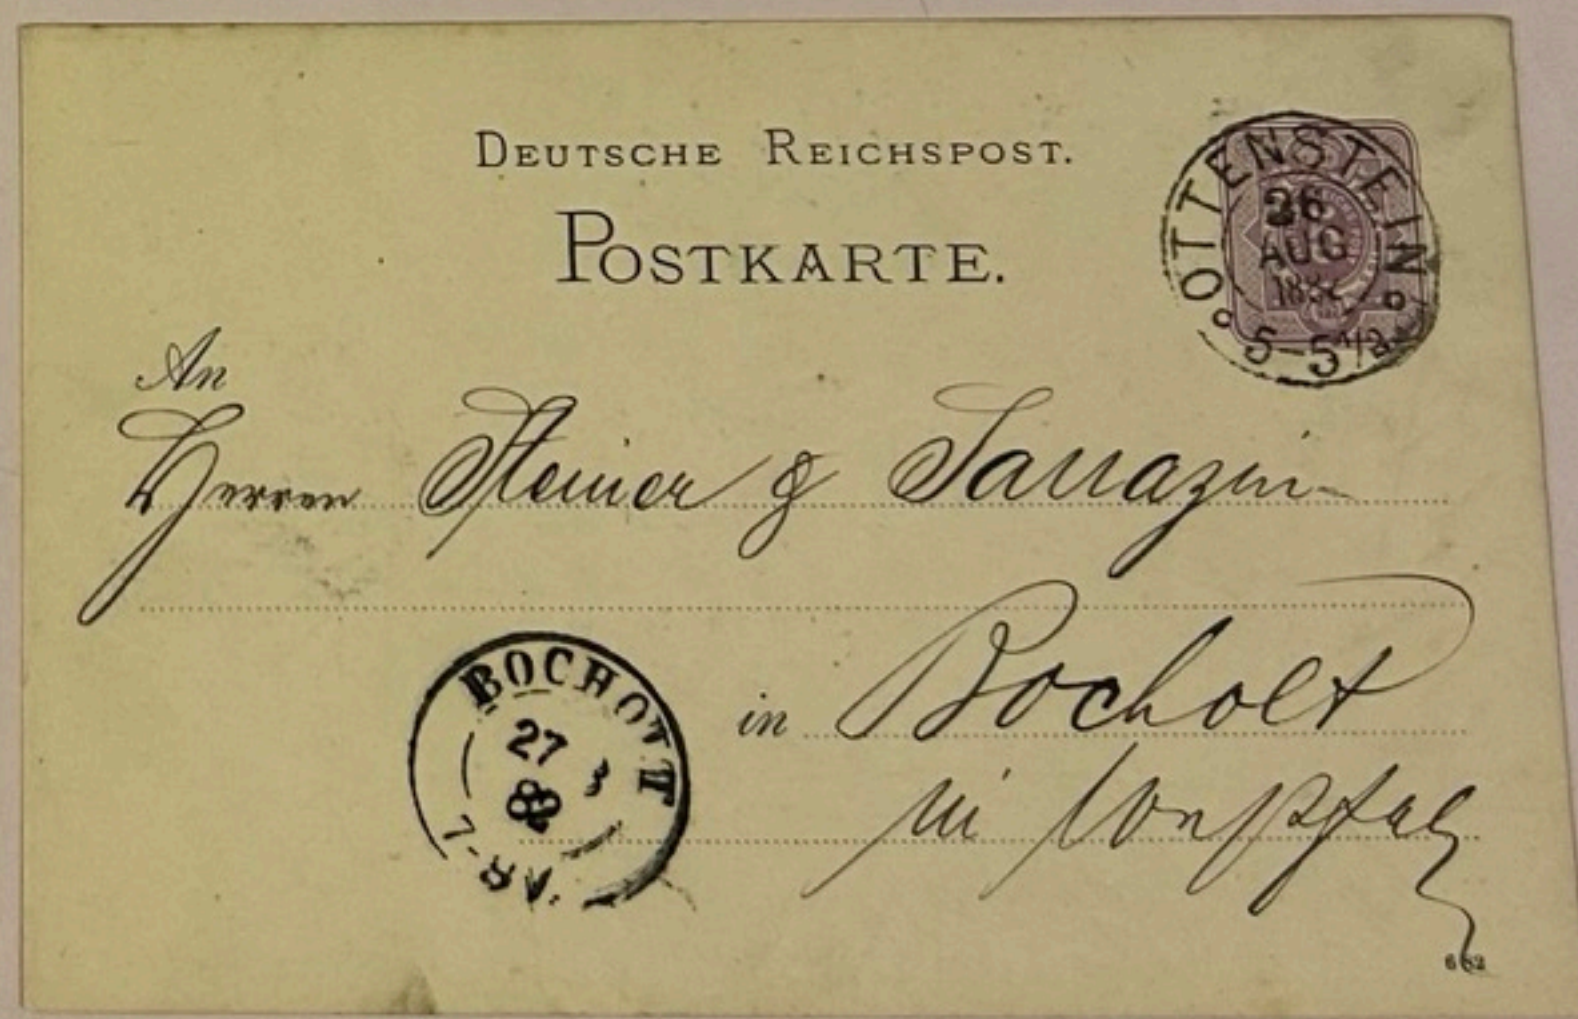 DEUTSCHE REICHSPOST.
POSTKARTE.
OTTENSTEIN
26
AUG
1882
5-5½
An
Herren Steiner & Sarrazin
BOCHOLT
27
82
7-8
in Bocholt
in Westfal
6 82